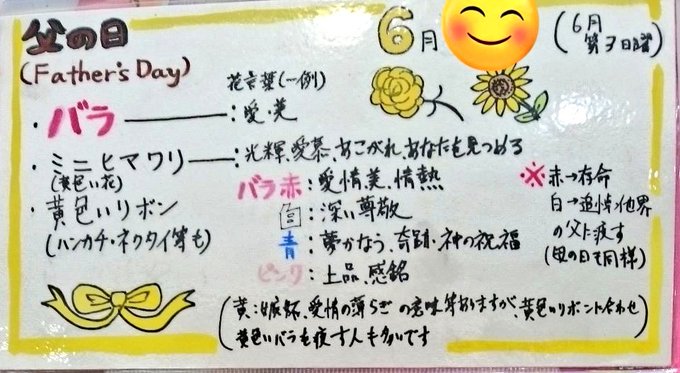 父の日
(Father's Day)
6月
(6月
第3日曜)
花言葉(一例)
・バラ――:愛・美
・ミニヒマワリ――:光輝、愛慕、あこがれ、あなたを見つめる
(黄色い花)
・黄色いリボン
(ハンカチ・ネクタイ等も)
バラ赤:愛情、美、情熱
白:深い尊敬
青:夢かなう、奇跡・神の祝福
ピンク:上品、感銘
※赤→存命
白→追悼、他界
の父に渡す
(母の日も同様)
(黄:嫉妬、愛情の薄らぎの意味等ありますが、黄色いリボンに合わせ
黄色いバラを渡す人も多いです)